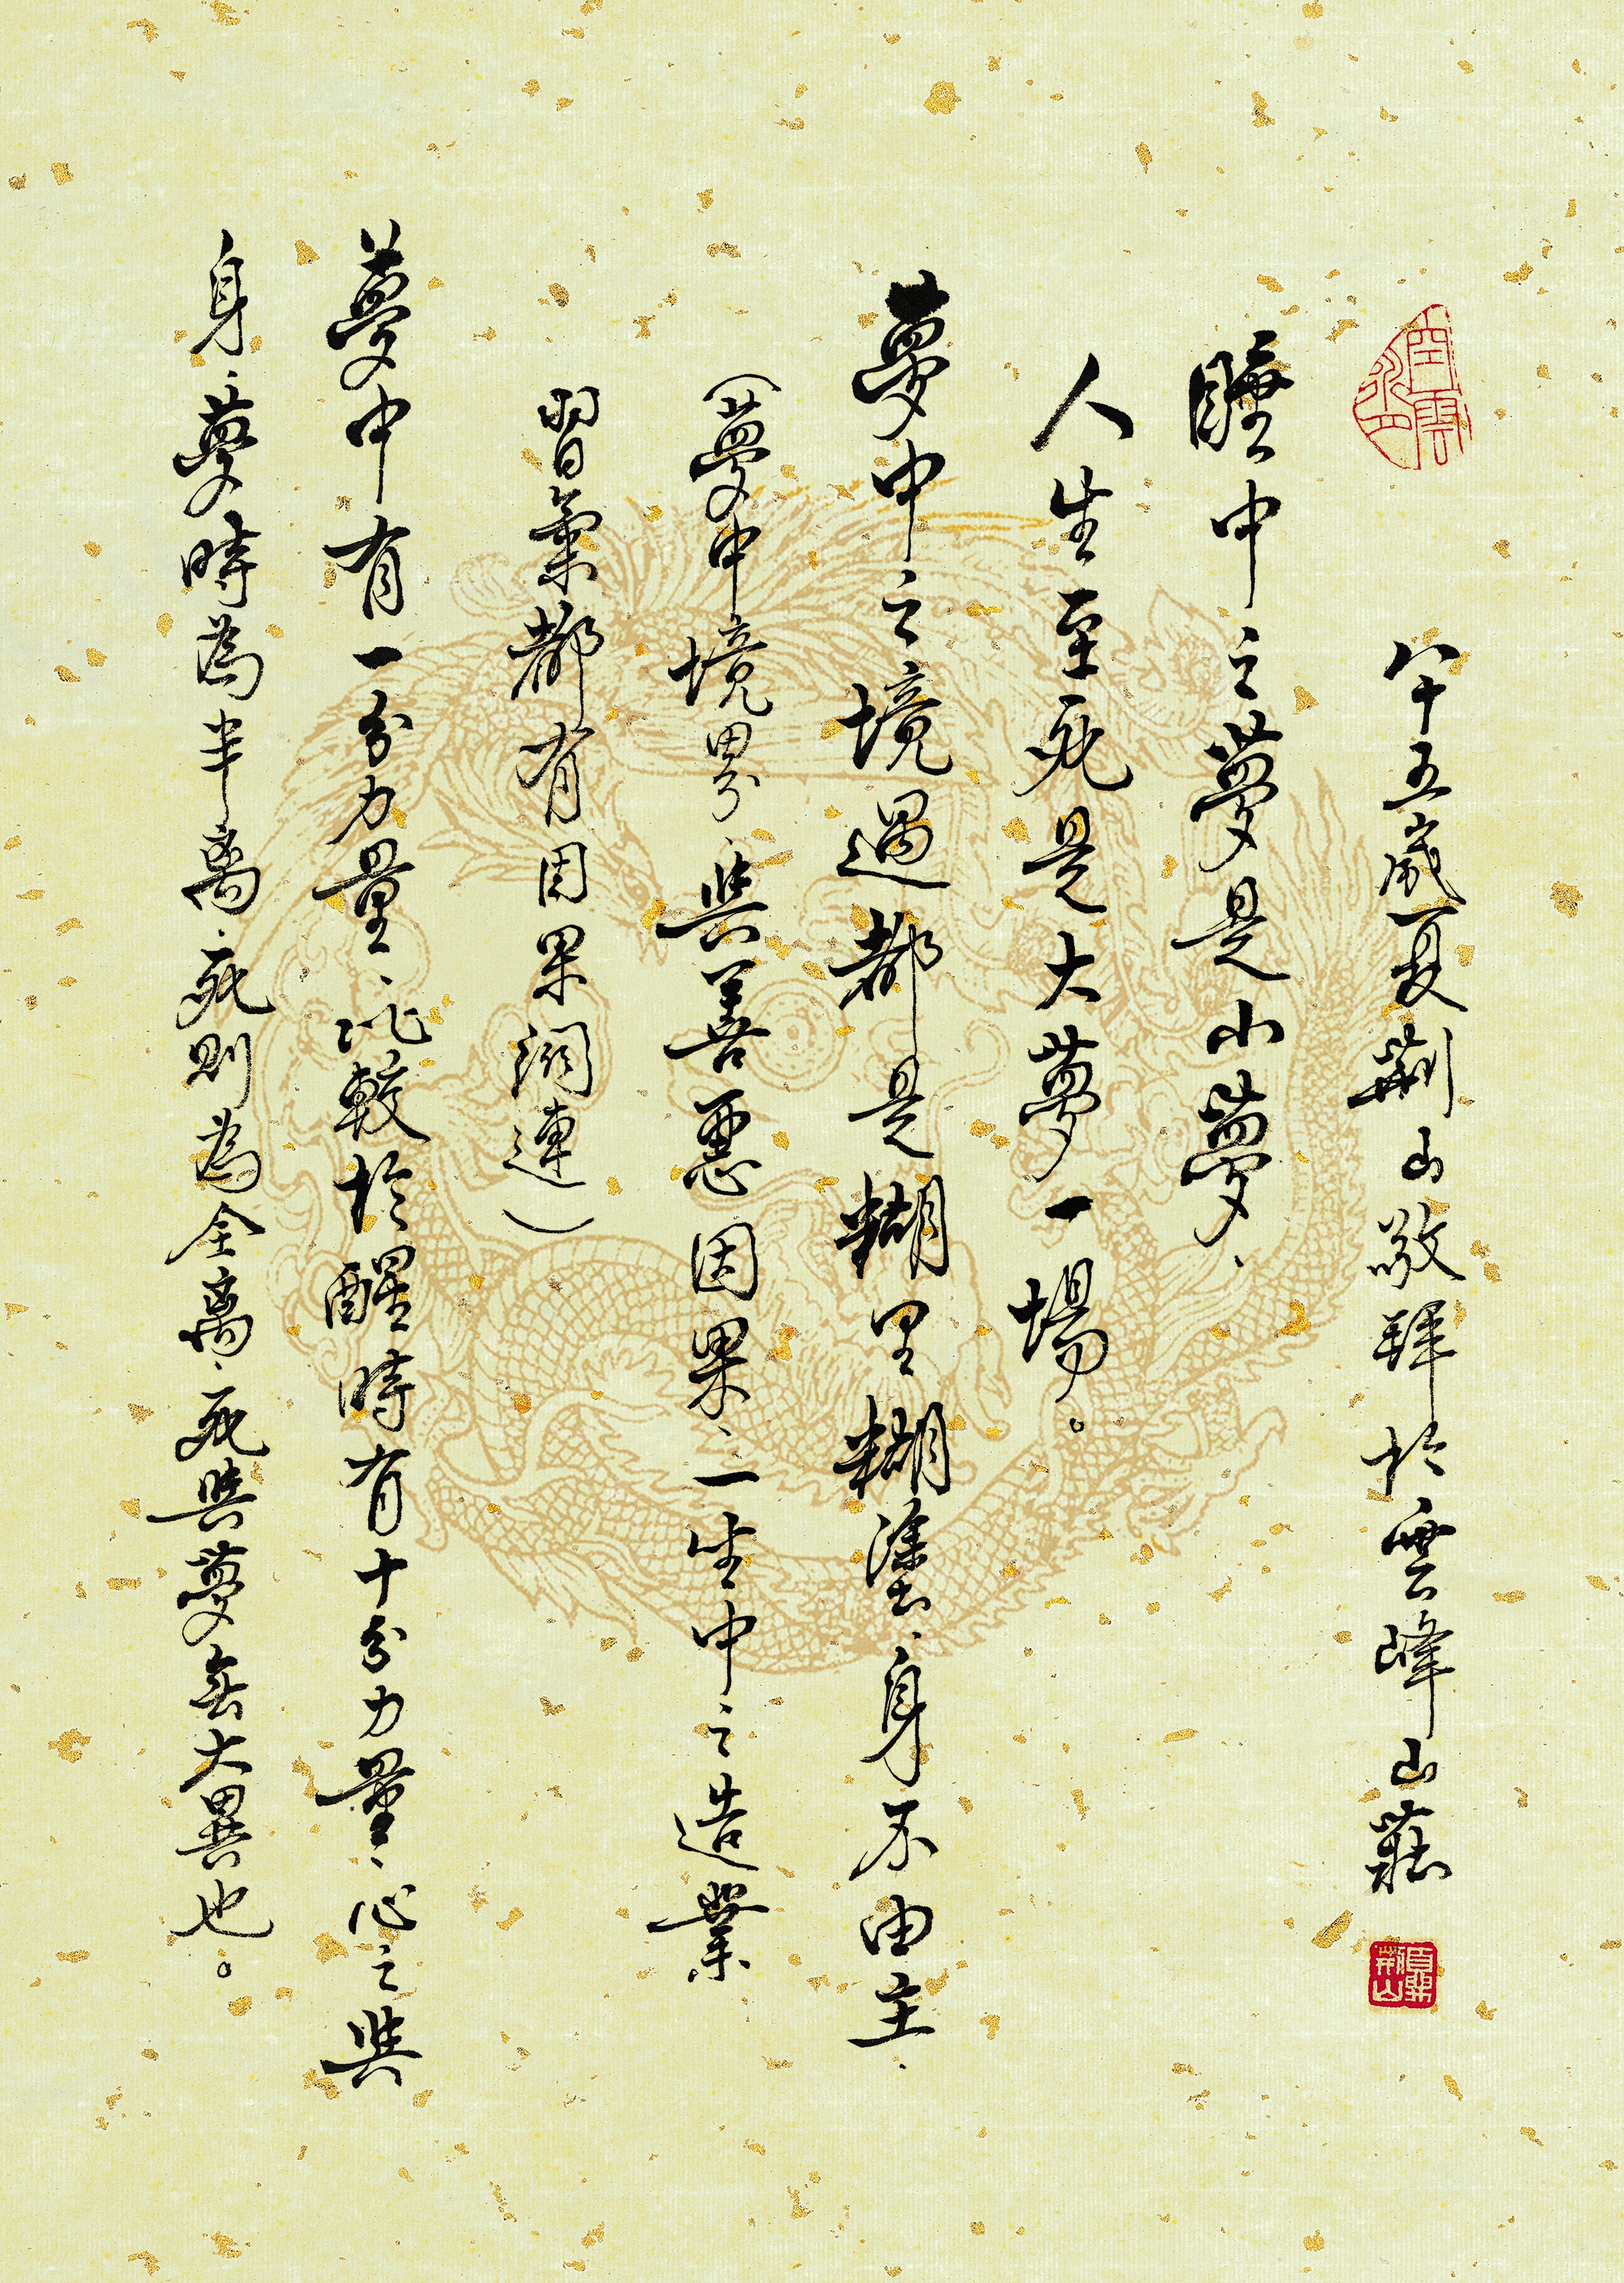 八十五歲夏荊山敬拜於雲峰山莊
睡中之夢是小夢、
人生至死是大夢一場。
夢中之境遇都是糊里糊塗、身不由主、
（夢中境界、與善惡因果、一生中之造業
習氣都有因果關連）
夢中有一分力量、比較於醒時有十分力量、心之與
身、夢時為半离、死則為全离、死與夢無大異也。